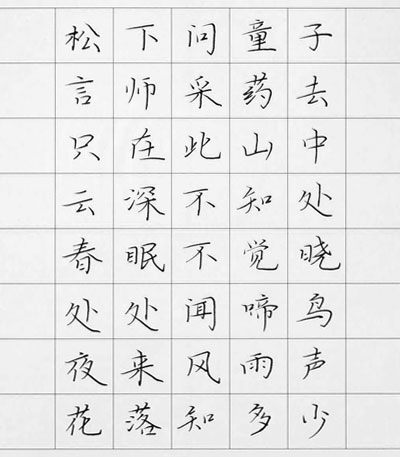 松下问童子
言师采药去
只在此山中
云深不知处
春眠不觉晓
处处闻啼鸟
夜来风雨声
花落知多少